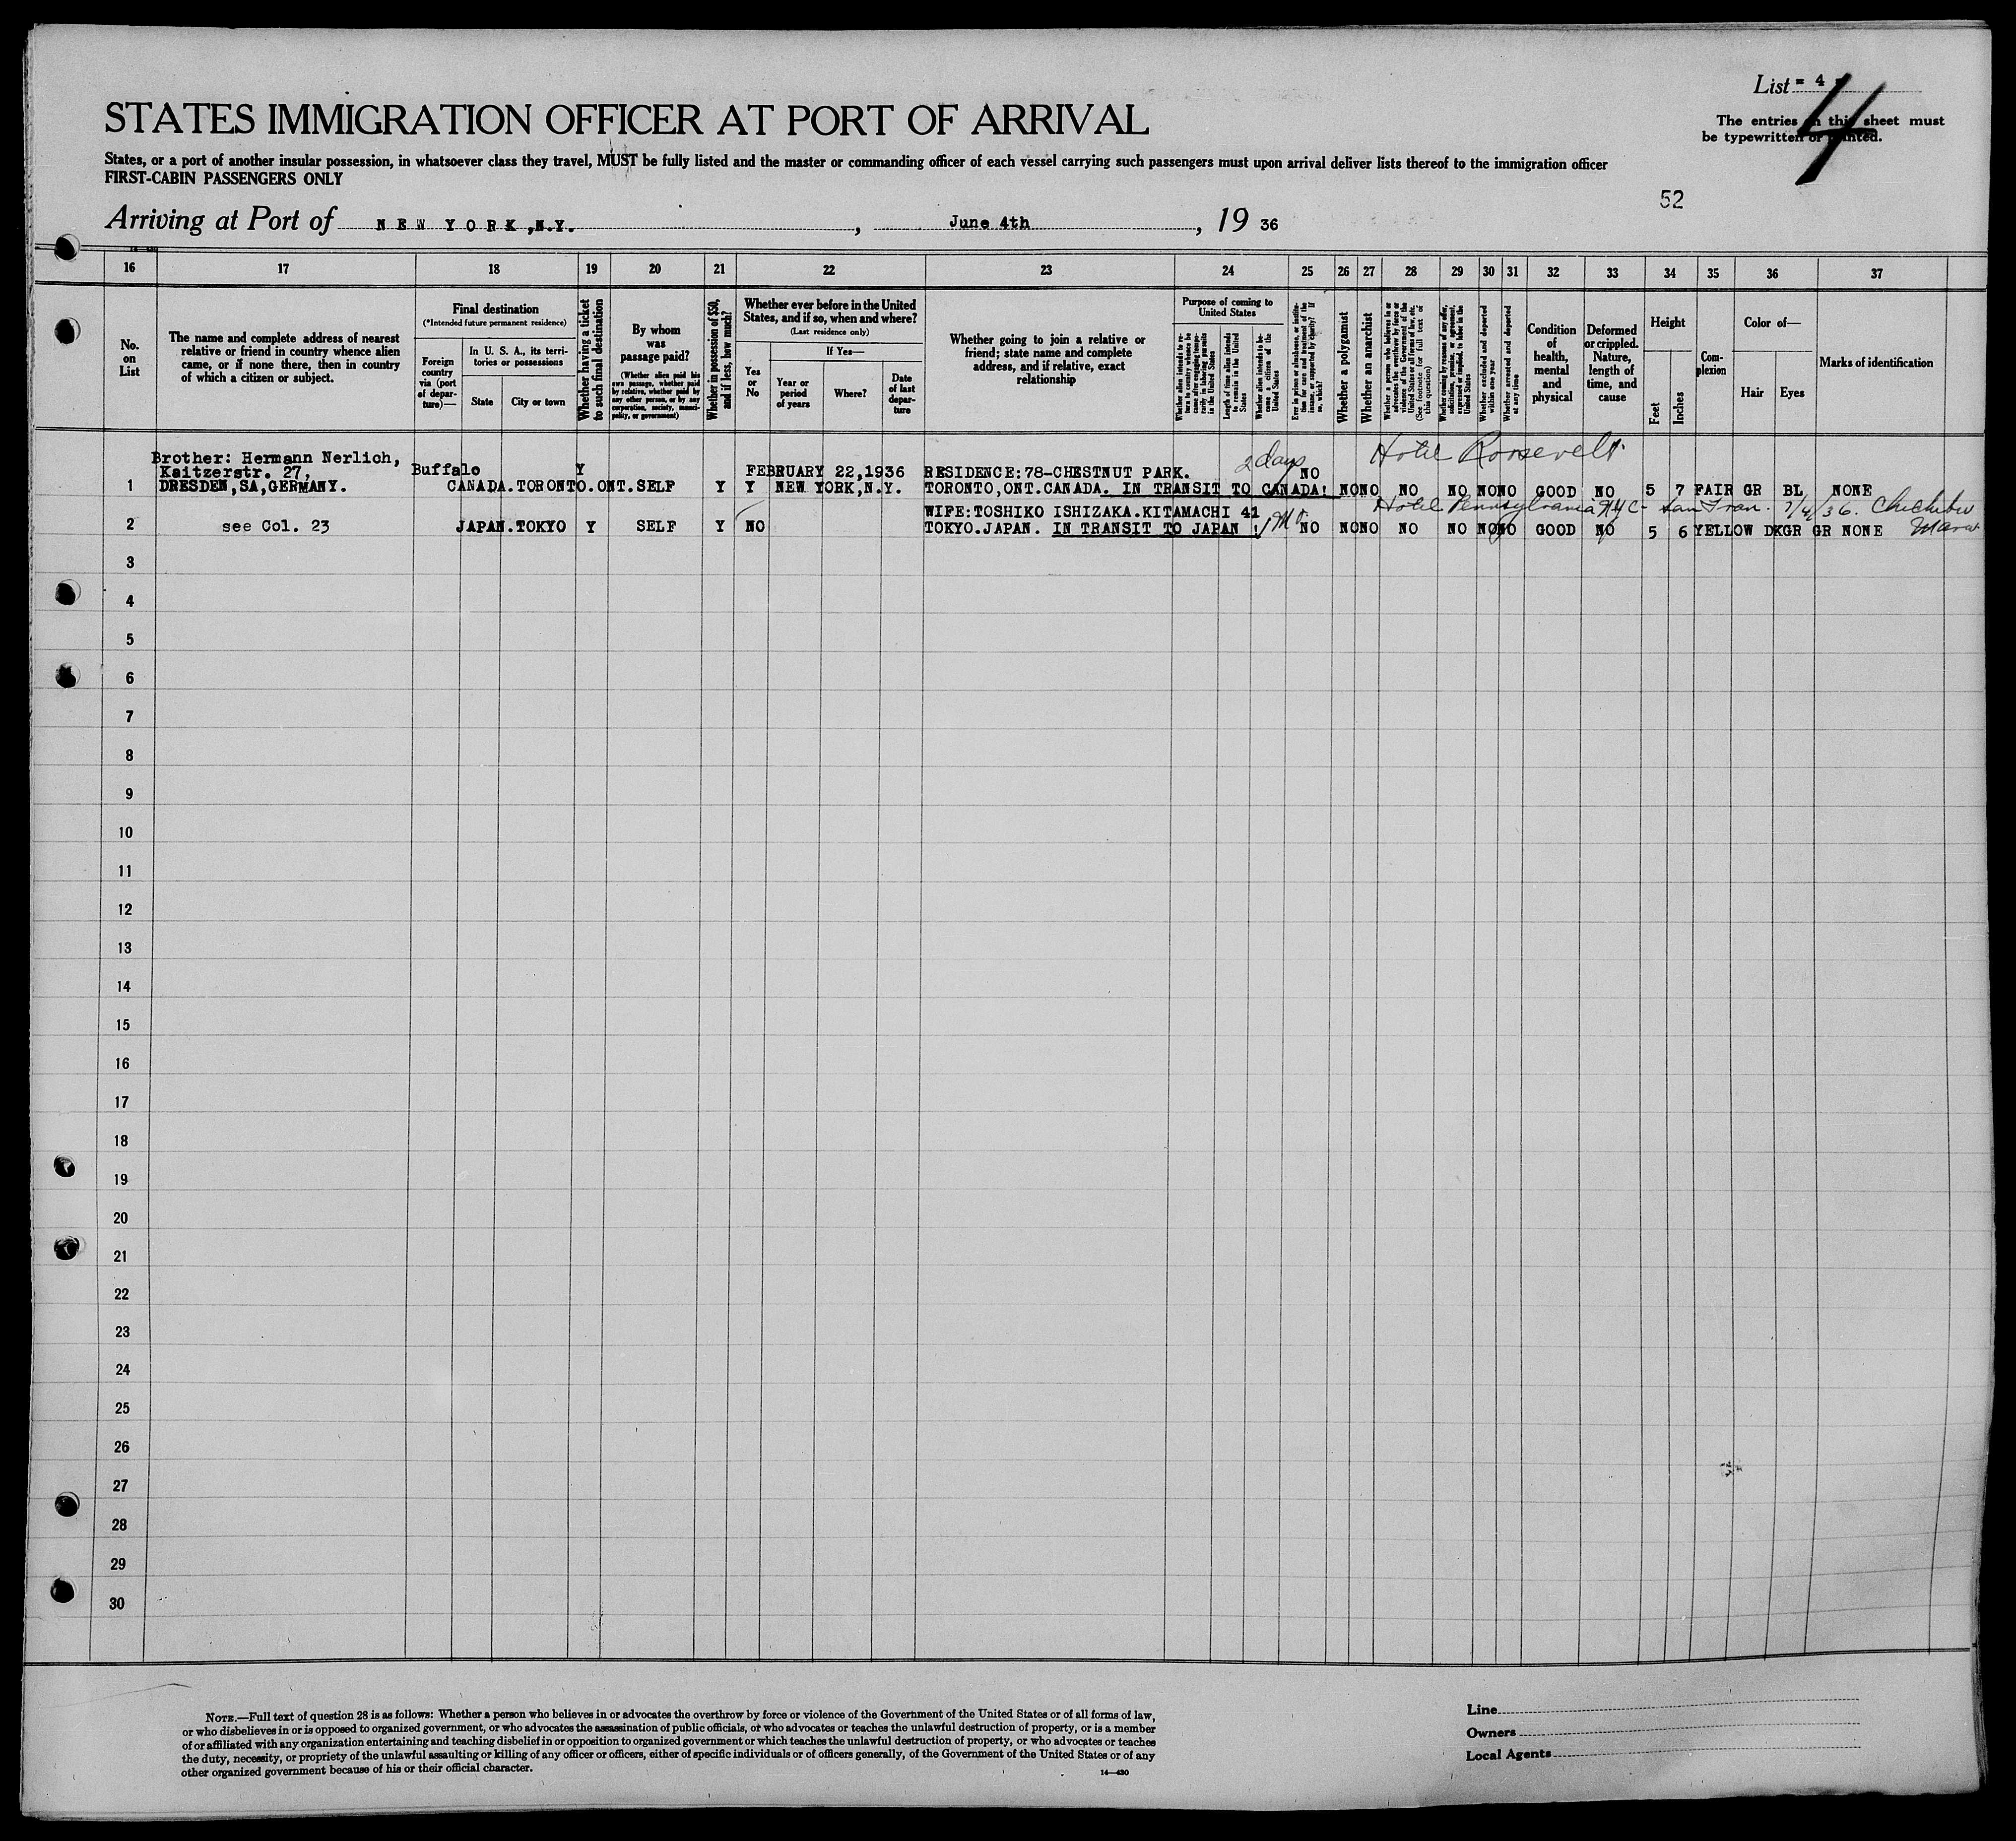 List = 4 =
4
STATES IMMIGRATION OFFICER AT PORT OF ARRIVAL
The entries on this sheet must
be typewritten or printed.
States, or a port of another insular possession, in whatsoever class they travel, MUST be fully listed and the master or commanding officer of each vessel carrying such passengers must upon arrival deliver lists thereof to the immigration officer
FIRST-CABIN PASSENGERS ONLY
52
Arriving at Port of NEW YORK,N.Y. , June 4th , 19 36
16 17 18 19 20 21 22 23 24 25 26 27 28 29 30 31 32 33 34 35 36 37
No. on List
The name and complete address of nearest
relative or friend in country whence alien
came, or if none there, then in country
of which a citizen or subject.
Final destination
(*Intended future permanent residence)
Foreign country via (port of departure)—
In U. S. A., its territories or possessions
State
City or town
Whether having a ticket to such final destination
By whom was passage paid?
(Whether alien paid his own passage, whether paid by relative, whether paid by any other person, or by any corporation, society, municipality, or government)
Whether in possession of $50, and if less, how much?
Whether ever before in the United States, and if so, when and where?
(Last residence only)
Yes or No
If Yes—
Year or period of years
Where?
Date of last departure
Whether going to join a relative or
friend; state name and complete
address, and if relative, exact
relationship
Purpose of coming to United States
Whether alien intends to return to country whence he came after engaging temporarily in laboring pursuits in the United States
Length of time alien intends to remain in the United States
Whether alien intends to become a citizen of the United States
Ever in prison or almshouse, or institution for care and treatment of the insane, or supported by charity? If so, which?
Whether a polygamist
Whether an anarchist
Whether a person who believes in or advocates the overthrow by force or violence of the Government of the United States or all forms of law, etc. (See footnote for full text of this question)
Whether coming by reason of any offer, solicitation, promise, or agreement, expressed or implied, to labor in the United States
Whether excluded and deported within one year
Whether arrested and deported at any time
Condition of health, mental and physical
Deformed or crippled. Nature, length of time, and cause
Height
Feet
Inches
Complexion
Color of—
Hair
Eyes
Marks of identification
Brother: Hermann Nerlich, 2 days Hotel Roosevelt
Kaitzerstr. 27, Buffalo Y FEBRUARY 22,1936 RESIDENCE:78-CHESTNUT PARK. NO
1 DRESDEN,SA,GERMANY. CANADA.TORONTO.ONT.SELF Y Y NEW YORK,N.Y. TORONTO,ONT.CANADA. IN TRANSIT TO CANADA! NO NO NO NO NO NO GOOD NO 5 7 FAIR GR BL NONE
WIFE:TOSHIKO ISHIZAKA.KITAMACHI 41 Hotel Pennsylvania NYC - San Fran. 7/4/36. Chichibu
2 see Col. 23 JAPAN.TOKYO Y SELF Y NO TOKYO.JAPAN. IN TRANSIT TO JAPAN ! 1 Mo NO NO NO NO NO NO NO GOOD NO 5 6 YELLOW DKGR GR NONE Maru
3
4
5
6
7
8
9
10
11
12
13
14
15
16
17
18
19
20
21
22
23
24
25
26
27
28
29
30
NOTE.—Full text of question 28 is as follows: Whether a person who believes in or advocates the overthrow by force or violence of the Government of the United States or of all forms of law,
or who disbelieves in or is opposed to organized government, or who advocates the assassination of public officials, or who advocates or teaches the unlawful destruction of property, or is a member
of or affiliated with any organization entertaining and teaching disbelief in or opposition to organized government or which teaches the unlawful destruction of property, or who advocates or teaches
the duty, necessity, or propriety of the unlawful assaulting or killing of any officer or officers, either of specific individuals or of officers generally, of the Government of the United States or of any
other organized government because of his or their official character.
14—430
Line
Owners
Local Agents